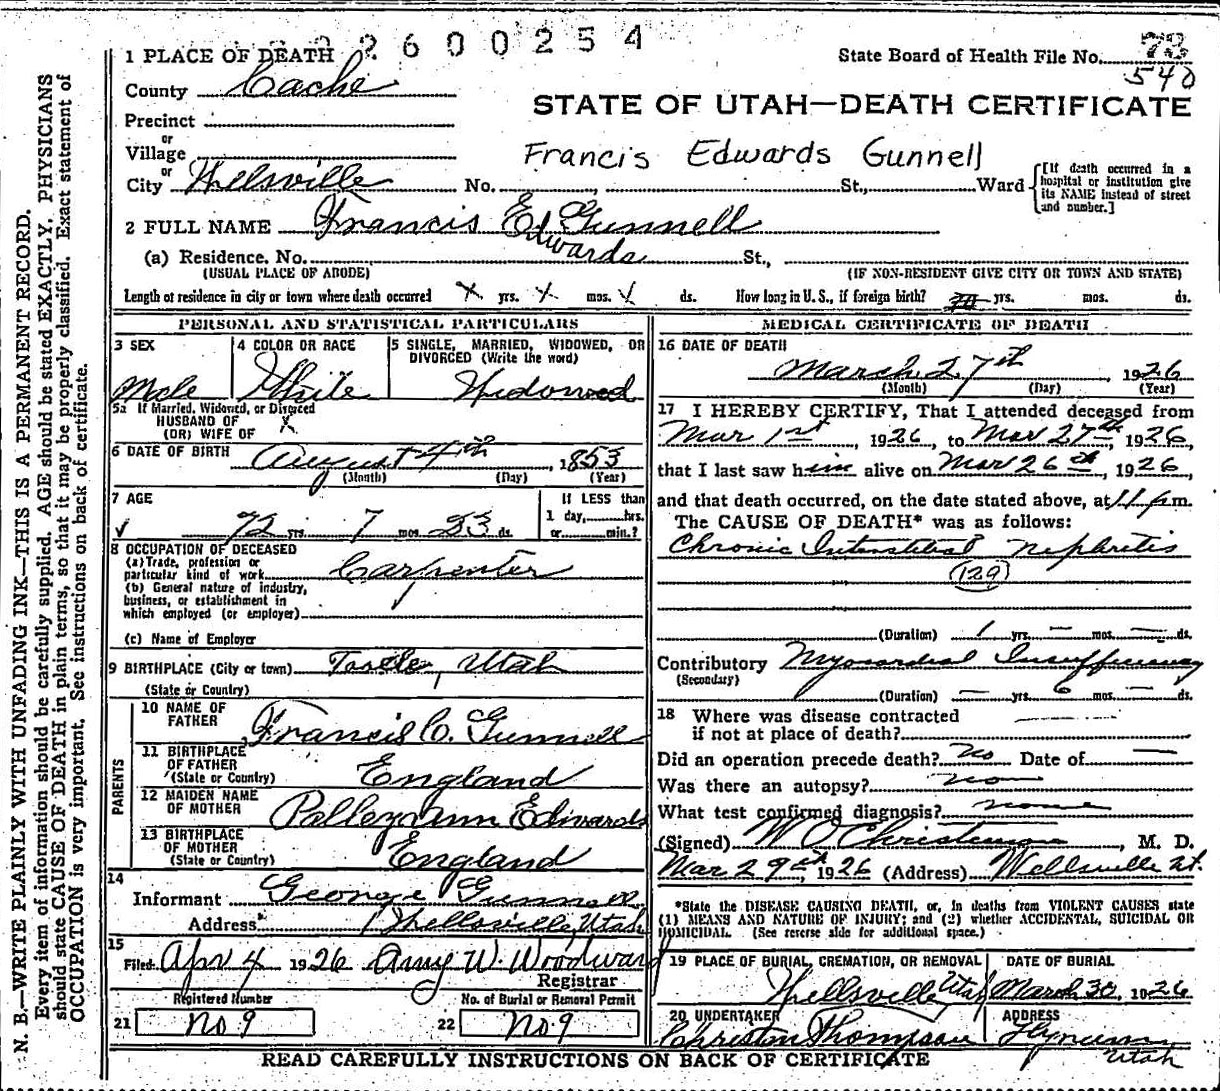 2600254
1 PLACE OF DEATH
State Board of Health File No. 73
540
County Cache
STATE OF UTAH—DEATH CERTIFICATE
Precinct
or
Village
Francis Edwards Gunnell
or
City Wellsville No. St., Ward
[If death occurred in a hospital or institution give its NAME instead of street and number.]
2 FULL NAME Francis Ed Gunnell
Edwards
(a) Residence. No. St.,
(USUAL PLACE OF ABODE) (IF NON-RESIDENT GIVE CITY OR TOWN AND STATE)
Length of residence in city or town where death occurred x yrs. x mos. ds. How long in U. S., if foreign birth? yrs. mos. ds.
PERSONAL AND STATISTICAL PARTICULARS
3 SEX 4 COLOR OR RACE 5 SINGLE, MARRIED, WIDOWED, OR
DIVORCED (Write the word)
Male White Widowed
5a If Married, Widowed, or Divorced
HUSBAND OF x
(OR) WIFE OF
6 DATE OF BIRTH August 4th, 1853
(Month) (Day) (Year)
7 AGE If LESS than
1 day, hrs.
72 yrs. 7 mos. 23 ds. or min.?
8 OCCUPATION OF DECEASED
(a) Trade, profession or
particular kind of work Carpenter
(b) General nature of industry,
business, or establishment in
which employed (or employer)
(c) Name of Employer
9 BIRTHPLACE (City or town) Tooele, Utah
(State or Country)
PARENTS
10 NAME OF
FATHER Francis C. Gunnell
11 BIRTHPLACE
OF FATHER
(State or Country) England
12 MAIDEN NAME
OF MOTHER Polleyann Edwards
13 BIRTHPLACE
OF MOTHER
(State or Country) England
14
Informant George Gunnell
Address Wellsville, Utah
15
Filed Apr 4 1926 Amy W. Woodward
Registrar
Registered Number No. of Burial or Removal Permit
21 No 9 22 No. 9
MEDICAL CERTIFICATE OF DEATH
16 DATE OF DEATH
March 27th, 1926
(Month) (Day) (Year)
17 I HEREBY CERTIFY, That I attended deceased from
Mar 1st, 1926, to Mar 27th, 1926,
that I last saw him alive on Mar 26th, 1926,
and that death occurred, on the date stated above, at 11 p m.
The CAUSE OF DEATH* was as follows:
Chronic Interstitial Nephritis
(129)
(Duration) 1 yrs. — mos. — ds.
Contributory Myocardial Insufficiency
(Secondary)
(Duration) — yrs. 6 mos. — ds.
18 Where was disease contracted
if not at place of death?
Did an operation precede death? no Date of —
Was there an autopsy? no
What test confirmed diagnosis? none
(Signed) W O Christensen, M. D.
Mar 29th, 1926 (Address) Wellsville Ut.
*State the DISEASE CAUSING DEATH, or, in deaths from VIOLENT CAUSES state
(1) MEANS AND NATURE OF INJURY; and (2) whether ACCIDENTAL, SUICIDAL OR
HOMICIDAL. (See reverse side for additional space.)
19 PLACE OF BURIAL, CREMATION, OR REMOVAL DATE OF BURIAL
Wellsville Utah March 30, 1926
20 UNDERTAKER ADDRESS
Thompson Hyrum
Utah
READ CAREFULLY INSTRUCTIONS ON BACK OF CERTIFICATE
N. B.—WRITE PLAINLY WITH UNFADING INK—THIS IS A PERMANENT RECORD.
Every item of information should be carefully supplied. AGE should be stated EXACTLY. PHYSICIANS
should state CAUSE OF DEATH in plain terms, so that it may be properly classified. Exact statement of
OCCUPATION is very important. See instructions on back of certificate.